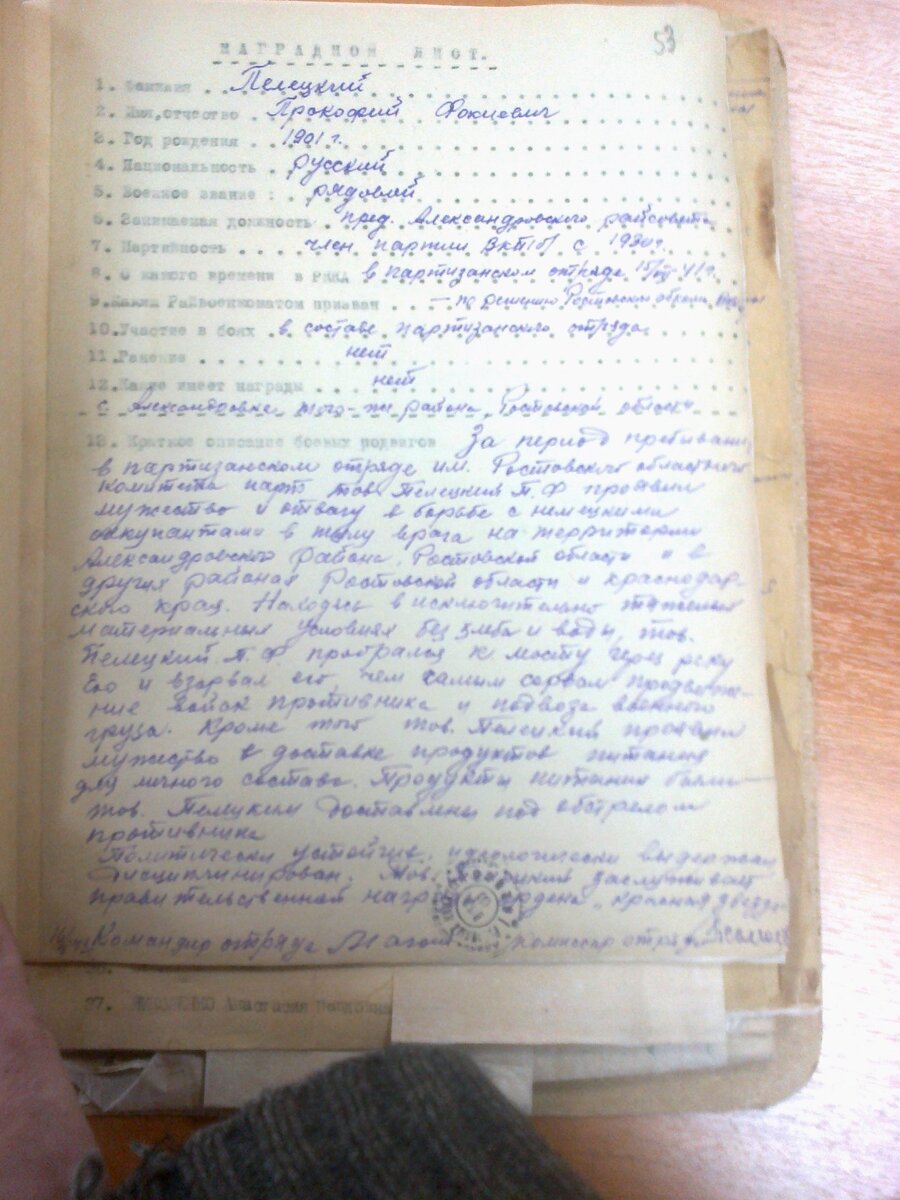 53
НАГРАДНОЙ ЛИСТ.
1. Фамилия Пелецкий
2. Имя, отчество Прокофий Фокиевич
3. Год рождения 1901 г.
4. Национальность русский
5. Военное звание: рядовой
6. Занимаемая должность пред. Александровского райсовета
7. Партийность член партии ВКП(б) с 1930 г.
8. С какого времени в РККА в партизанском отряде 41 г.
9. Каким Райвоенкоматом призван – по решению Ростовского
10. Участие в боях в составе партизанского отряда
11. Ранение нет
12. Какие имеет награды нет
с Александровка того-же района, Ростовской области
13. Краткое описание боевых подвигов За период пребывания
в партизанском отряде им. Ростовского областного
комитета парт тов. Пелецкий П.Ф проявил
мужество и отвагу в борьбе с немецкими
оккупантами в тылу врага на территории
Александровского района, Ростовской области и в
других районах Ростовской области и краснодар-
ского края. Находясь в исключительно тяжелых
материальных условиях без хлеба и воды, тов.
Пелецкий П.Ф пробрался к мосту через реку
Ею и взорвал его, чем самым сорвал продвиже-
ние войск противника и подвоза военного
груза. Кроме того тов. Пелецкий проявил
мужество в доставке продуктов питания
для личного состава. Продукты питания были
тов. Пелецким доставлены под обстрелом
противника
Политически устойчив, идеологически выдержан
дисциплинирован. Тов. заслуживает
правительственной награды ордена „красная звезда
Командир отряда комиссар
27. Анастасия